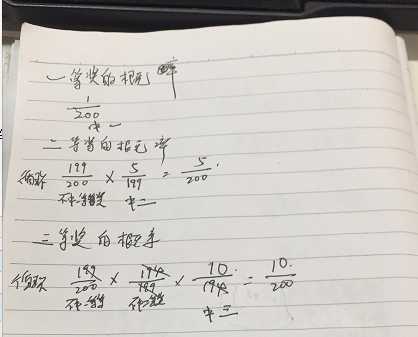 一等奖的概率
1/200
中一
二等奖的概率
199/200 × 5/199 = 5/200
不中一等奖 中二
三等奖的概率
199/200 × 194/199 × 10/194 = 10/200
不中一等奖 不中二等奖
中三